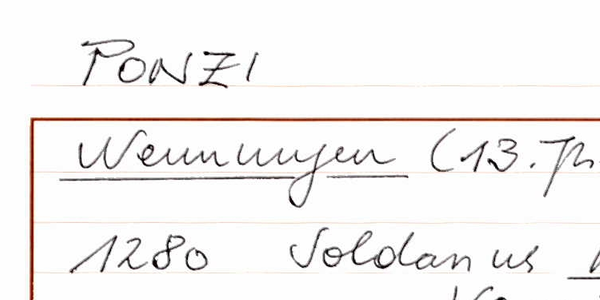 PONZI
Wennungen (13. Jh.
1280 Soldanus